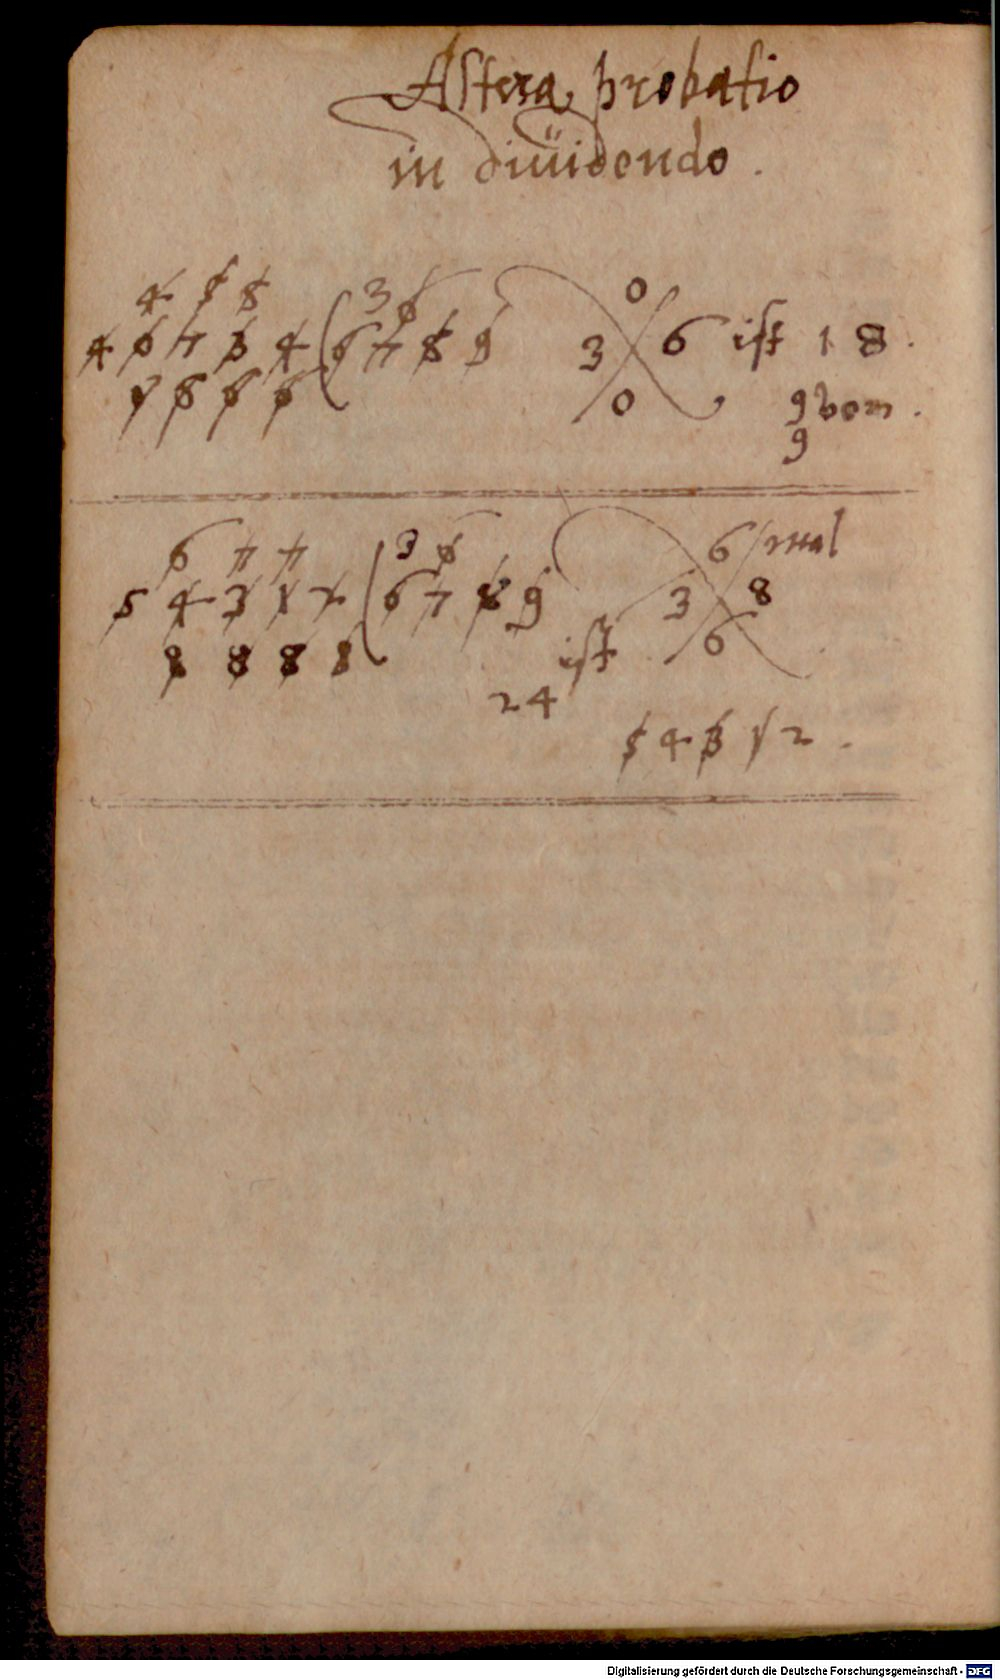 Altera probatio
in diuidendo .
4 5 5 3 6
4 0 7 3 4 ( 6 7 8 9
6 6 6 6
0
3 6 ist 18 .
0
9 vom .
9
6 7 7 3 6
5 4 3 1 2 ( 6 7 8 9
8 8 8 8
6 mal
3 8
6
ist
24
5 4 3 1 2 .
Digitalisierung gefördert durch die Deutsche Forschungsgemeinschaft - DFG